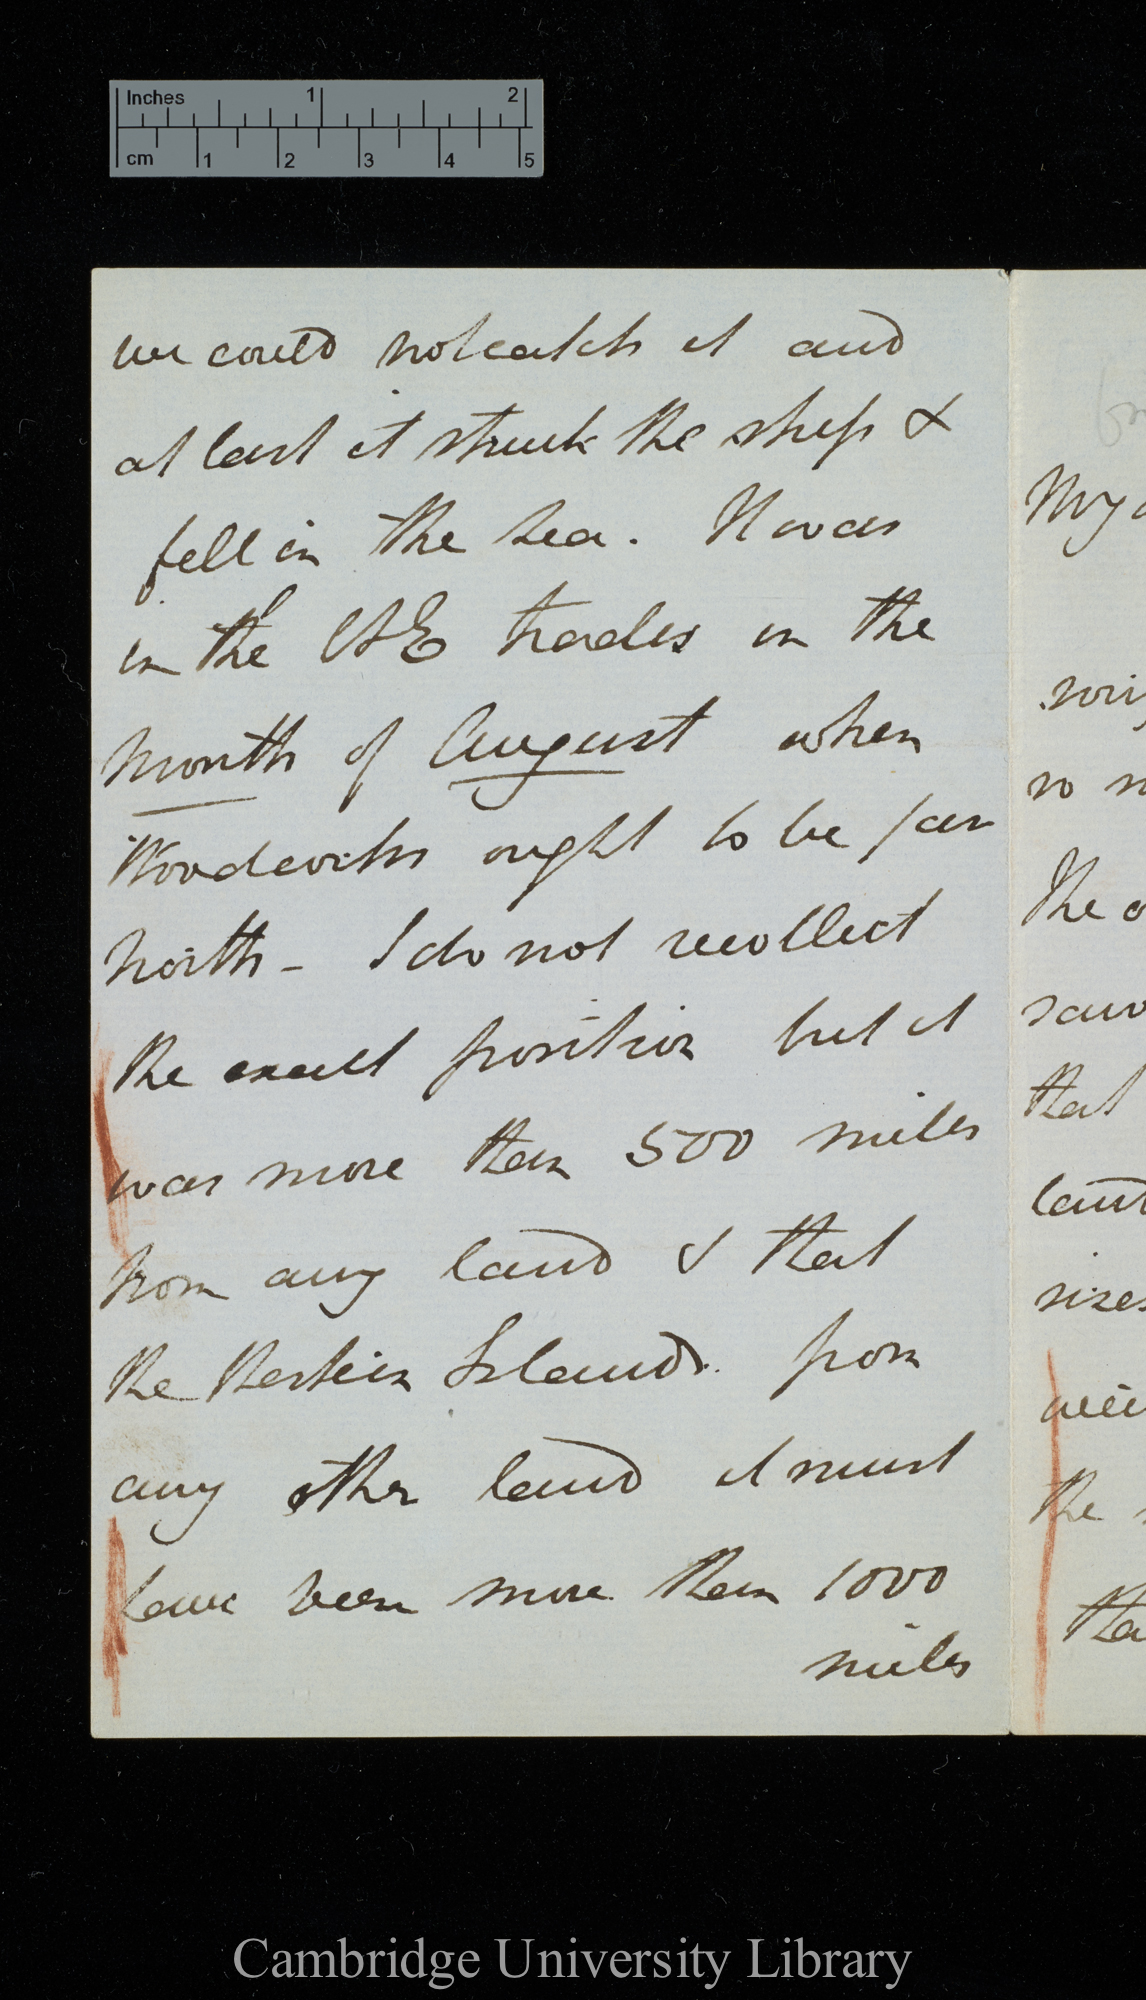 Inches 1 2
cm 1 2 3 4 5
we could not catch it and
at last it struck the ship &
fell in the sea. It was
in the NE trades in the
month of August when
Woodcocks ought to be far
north – I do not recollect
the exact position but it
was more than 500 miles
from any land & that
the Islands. from
any other land it must
have been more than 1000
miles
My
so
the
saw
that
sizes
the
Cambridge University Library